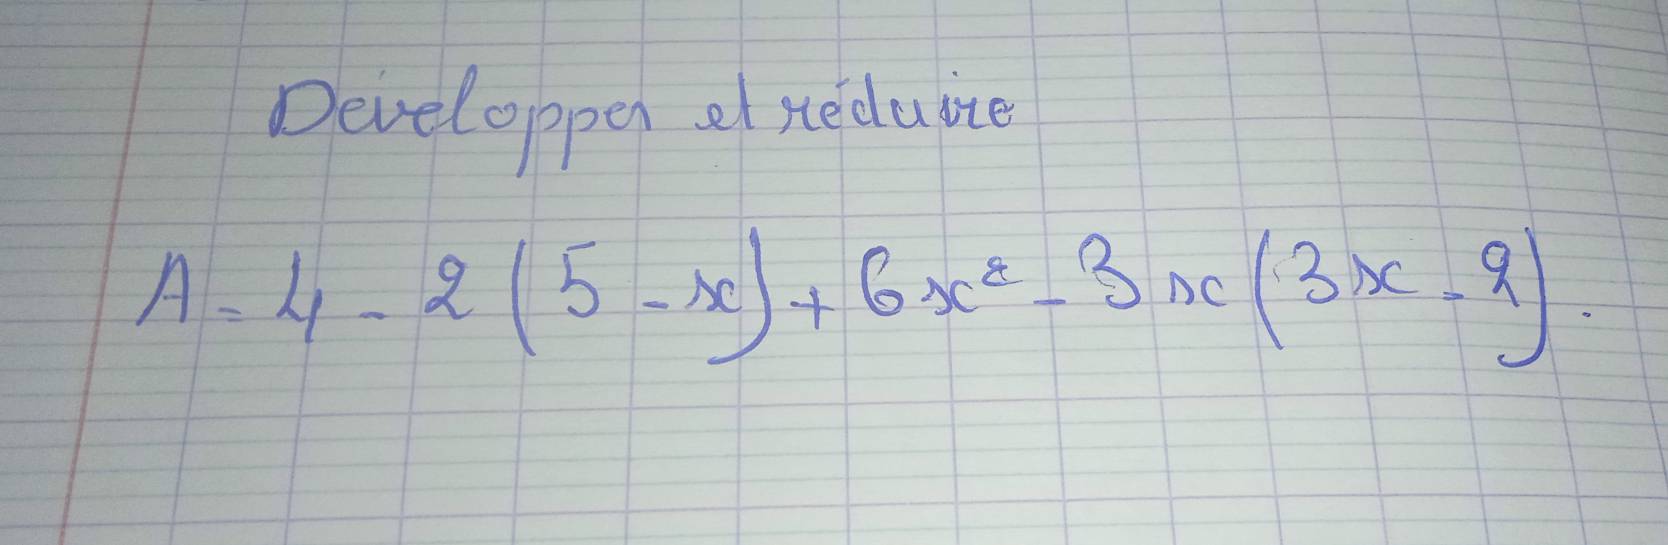 Developper et réduire
A = 4 - 2 ( 5 - x ) + 6x² - 3x ( 3x - 2 ) .